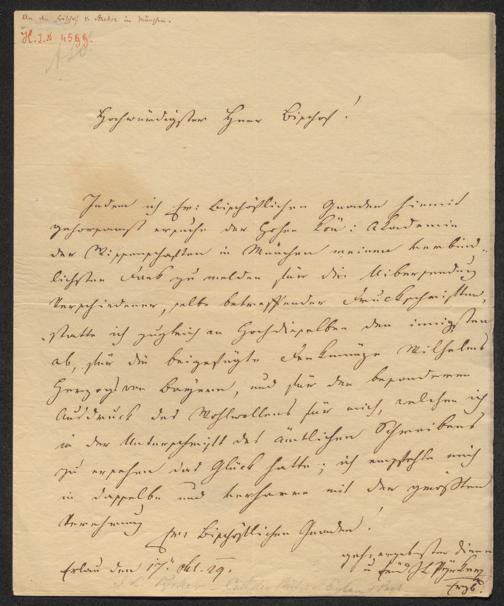 An den Bischof v. Streber in München.
H.I.N 4599.
Hochwürdigster Herr Bischof!
Indem ich Euer: Bischöflichen Gnaden hiemit
gehorsamst ersuche der Hohen Kön: Akademie
der Wissenschaften in München meinen verbind-
lichsten Dank zu melden für die Übersendung
verschiedener, selbe betreffender Druckschriften,
statte ich zugleich an Hochdieselben den innigsten
ab, für die beigefügte Denkmünze Wilhelms
Herzogs von Bayern, und für den besonderen
Ausdruck des Wohlwollens für mich, welchen ich
in der Unterschrift des ämtlichen Schreibens
zu ersehen das Glück hatte; ich empfehle mich
in dasselbe und verharre mit der größten
Verehrung
Er: Bischöflichen Gnaden!
Erlau den 17. Okt. 29.
gehs. ergebenster Diener
u. Pyrker
Erzb.